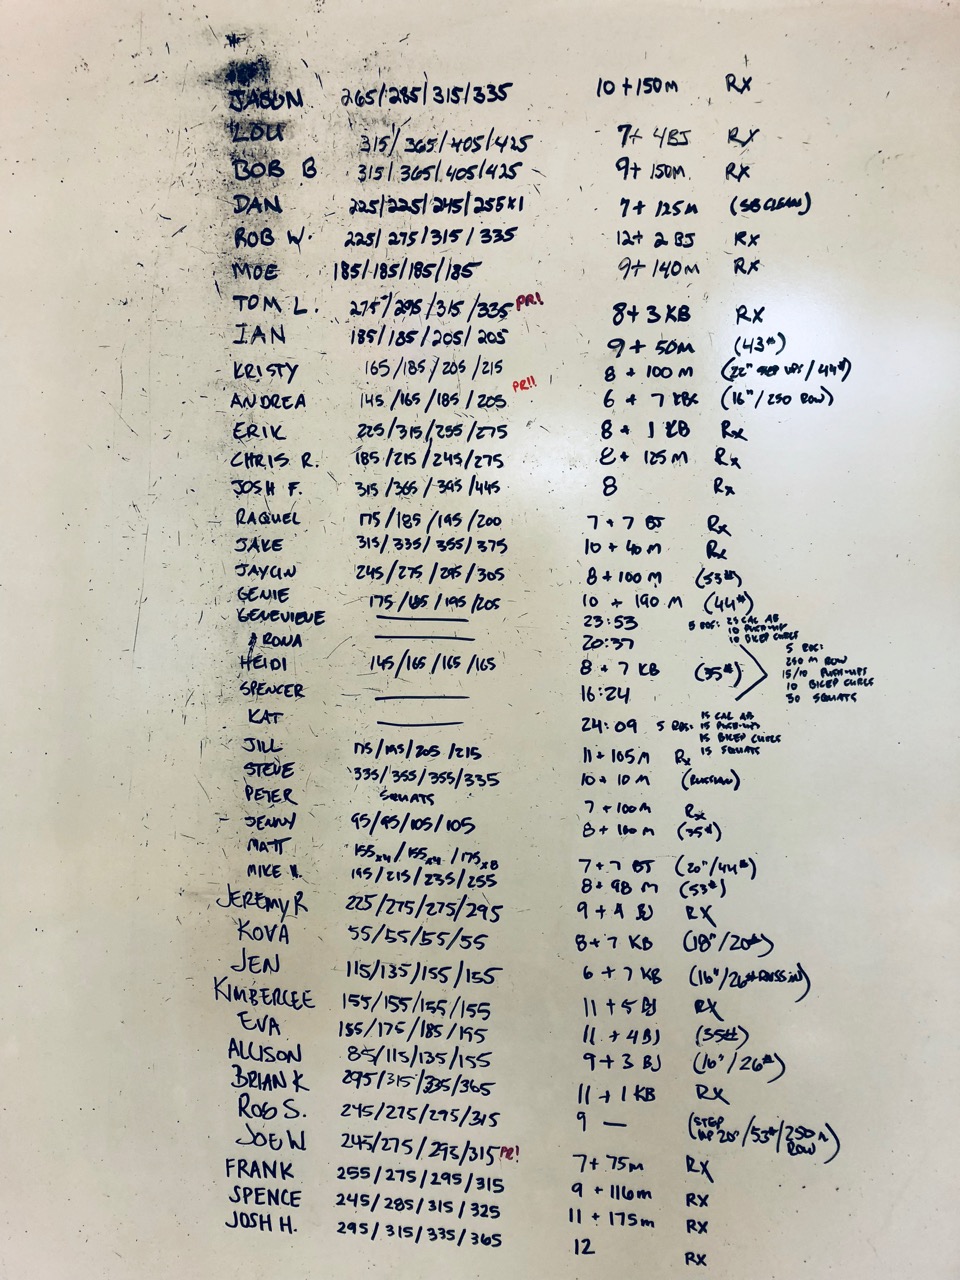 JASON 265/285/315/335 10 + 150M RX
LOU 315/365/405/425 7 + 4BJ RX
BOB B 315/365/405/425 9 + 150M RX
DAN 225/225/245/255X1 7 + 125M (SB CLEAN)
ROB W. 225/275/315/335 12 + 2 BJ RX
MOE 185/185/185/185 9 + 140M RX
TOM L. 275/295/315/335 PR! 8 + 3 KB RX
IAN 185/185/205/205 9 + 50M (43#)
KRISTY 165/185/205/215 8 + 100 M (22" STEP UPS/44#)
ANDREA 145/165/185/205 PR!! 6 + 7 KBS (16"/250 ROW)
ERIK 225/315/255/275 8 + 1 KB Rx
CHRIS R. 185/215/245/275 8 + 125 M Rx
JOSH F. 315/365/395/445 8 Rx
RAQUEL 175/185/195/200 7 + 7 BJ Rx
JAKE 315/335/355/375 10 + 40 M Rx
JAYLIN 245/275/295/305 8 + 100 M (53#)
GENIE 175/185/195/205 10 + 190 M (44#)
GENEVIEVE 23:53 5 RDS: 25 CAL AB
10 PUSH-UP
10 BICEP CURLS
RONA 20:37
HEIDI 145/165/165/165 8 + 7 KB (35#)
SPENCER 16:24
5 RDS:
250 M ROW
15/10 PUSH-UPS
10 BICEP CURLS
30 SQUATS
KAT 24:09 5 RDS: 15 CAL AB
15 PUSH-UPS
15 BICEP CURLS
15 SQUATS
JILL 175/195/205/215 11 + 105 M Rx
STEVE 335/355/355/335 10 + 10 M (RUSSIAN)
PETER SQUATS 7 + 100M Rx
JENNY 95/95/105/105 8 + 100 M (35#)
MATT 155x4/155x4/175x8 7 + 7 BJ (20"/44#)
MIKE 195/215/235/255 8 + 98 M (53#)
JEREMY R 225/275/275/295 9 + 4 BJ RX
KOVA 55/55/55/55 8 + 7 KB (18"/20#)
JEN 115/135/155/155 6 + 7 KB (16"/26# RUSSIAN)
KIMBERLEE 155/155/155/155 11 + 5 BJ RX
EVA 155/175/185/195 11 + 4BJ (35#)
ALLISON 85/115/135/155 9 + 3 BJ (16"/26#)
BRIAN K 295/315/335/365 11 + 1 KB RX
ROB S. 245/275/295/315 9 — (STEP UP 20"/53#/250M ROW)
JOE W 245/275/295/315 PR! 7 + 75m RX
FRANK 255/275/295/315 9 + 116m RX
SPENCE 245/285/315/325 11 + 175m RX
JOSH H. 295/315/335/365 12 RX